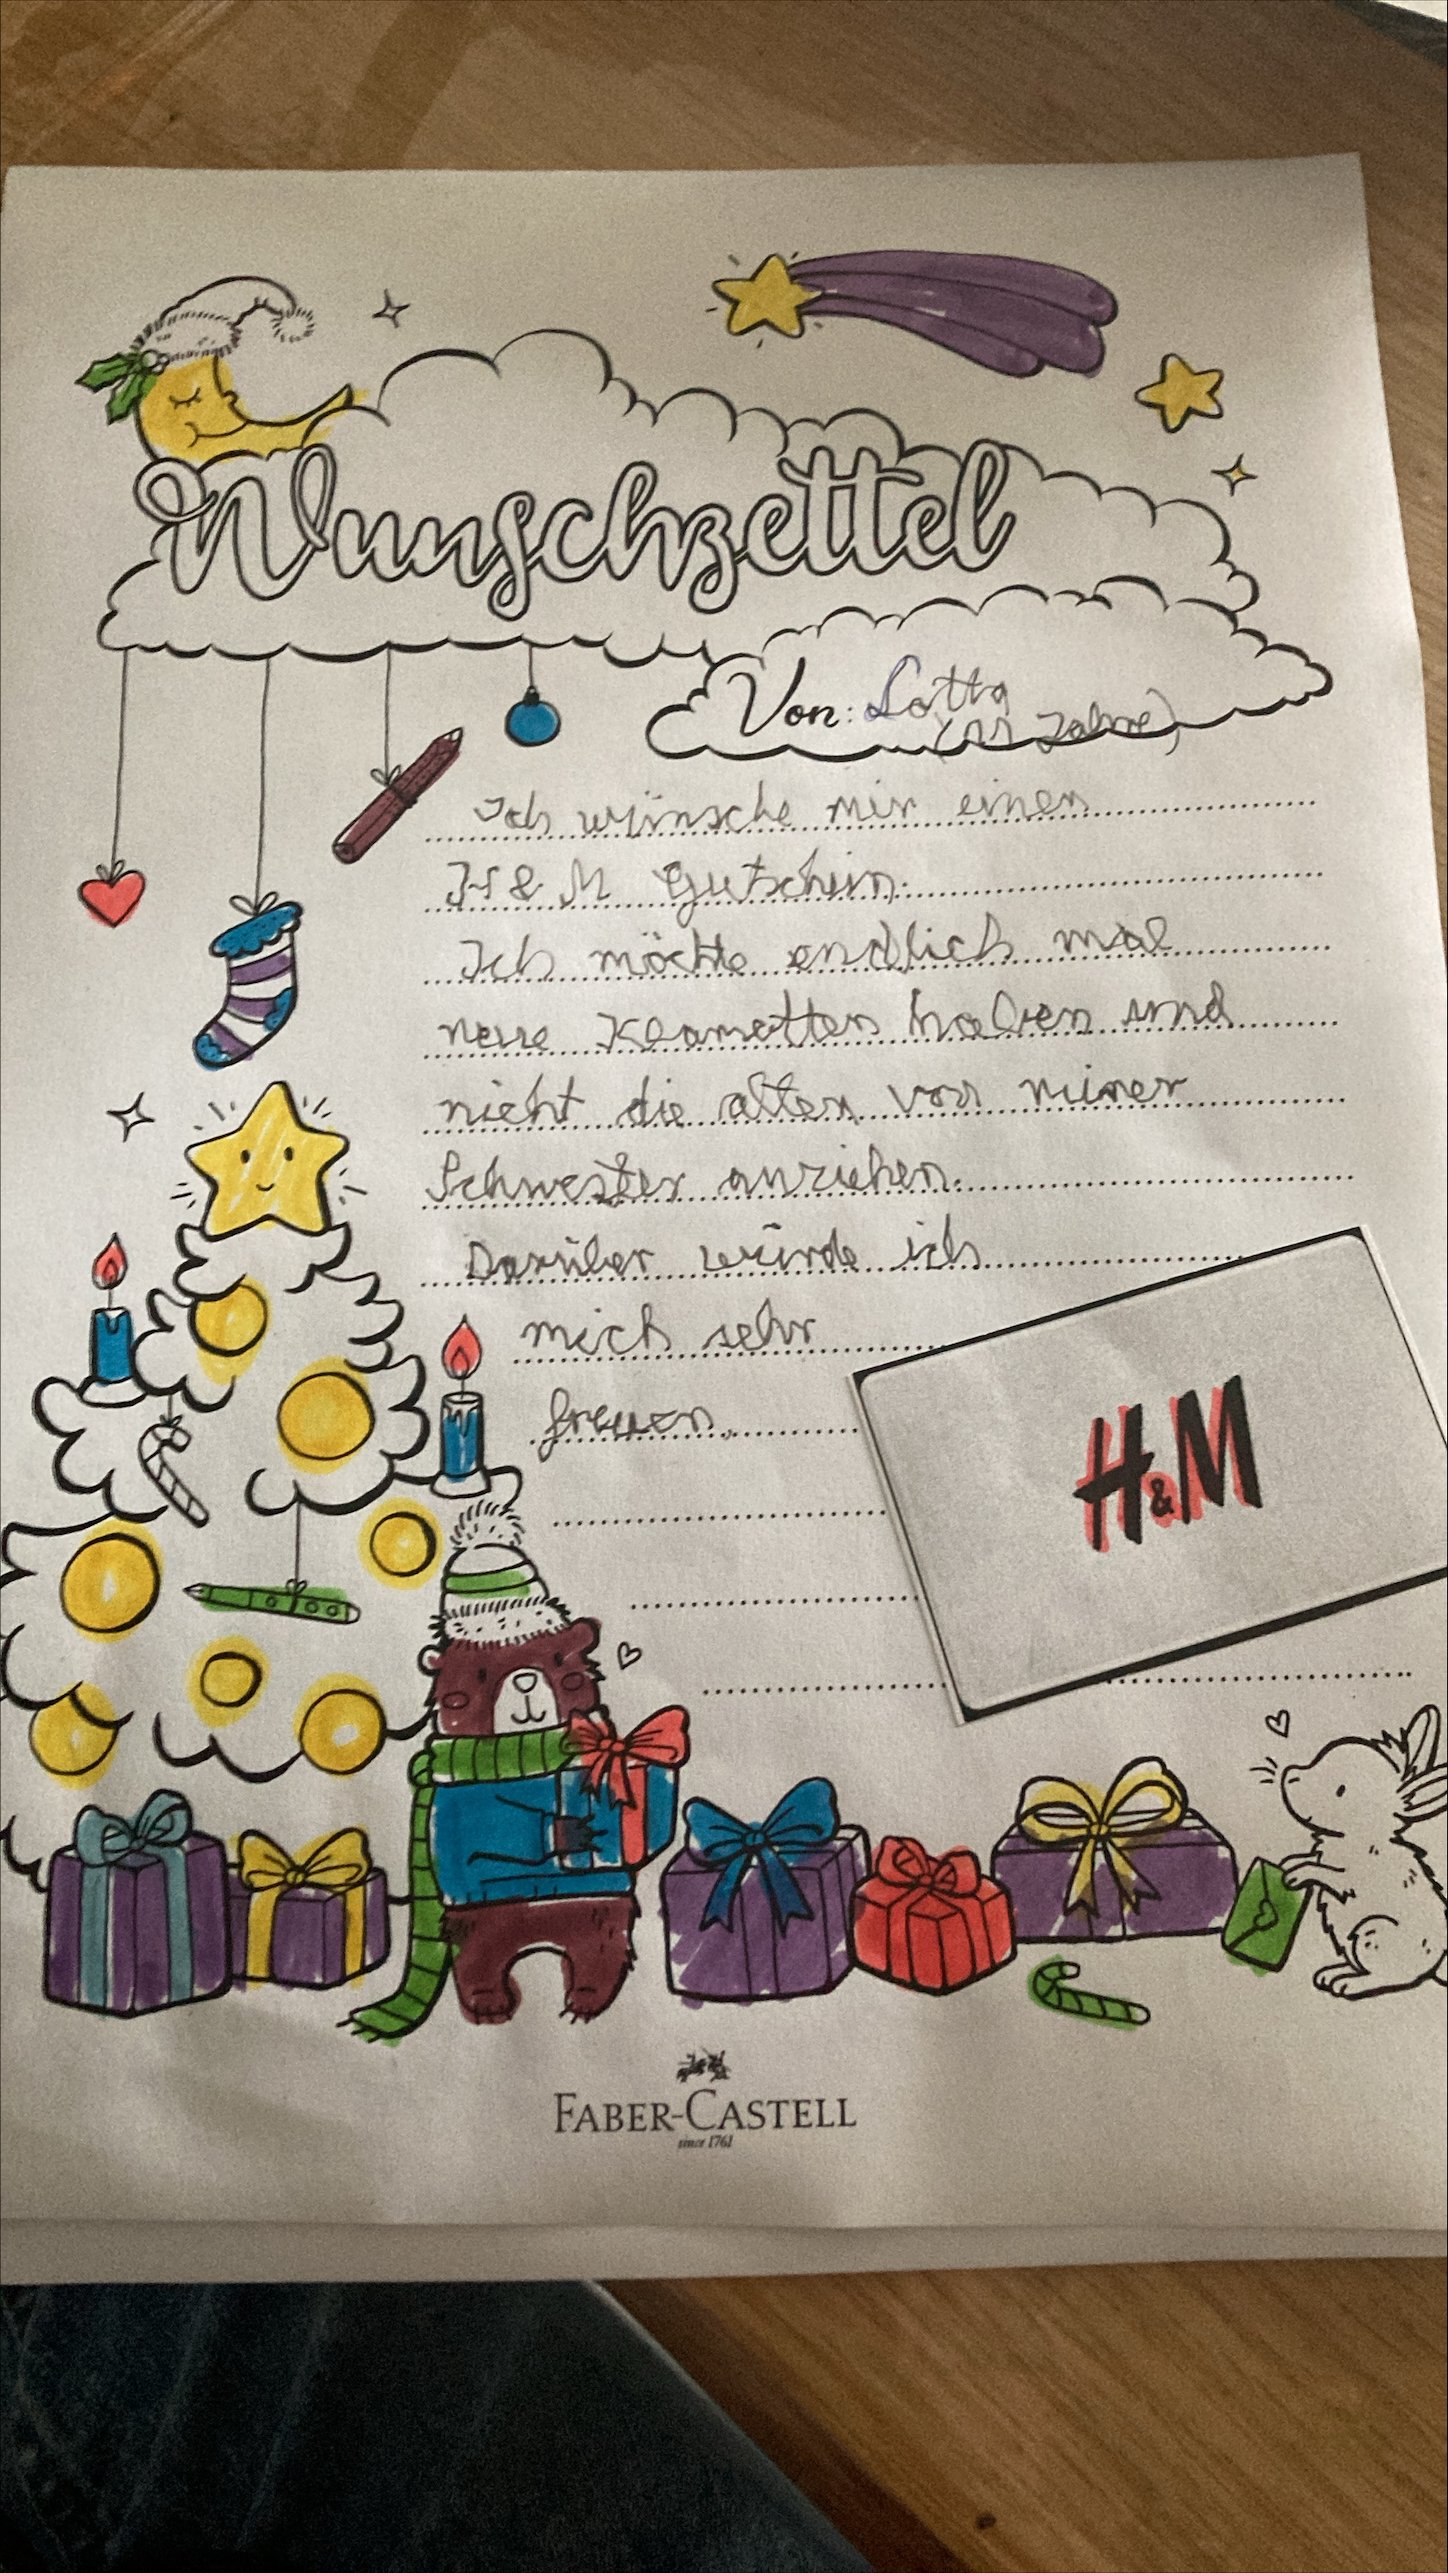 Wunschzettel
Von: Lotta
(11 Jahre)
Ich wünsche mir einen
H & M Gutschein.
Ich möchte endlich mal
neue Klamotten haben und
nicht die alten von meiner
Schwester anziehen.
Darüber würde ich
mich sehr
freuen.
H&M
FABER-CASTELL
since 1761